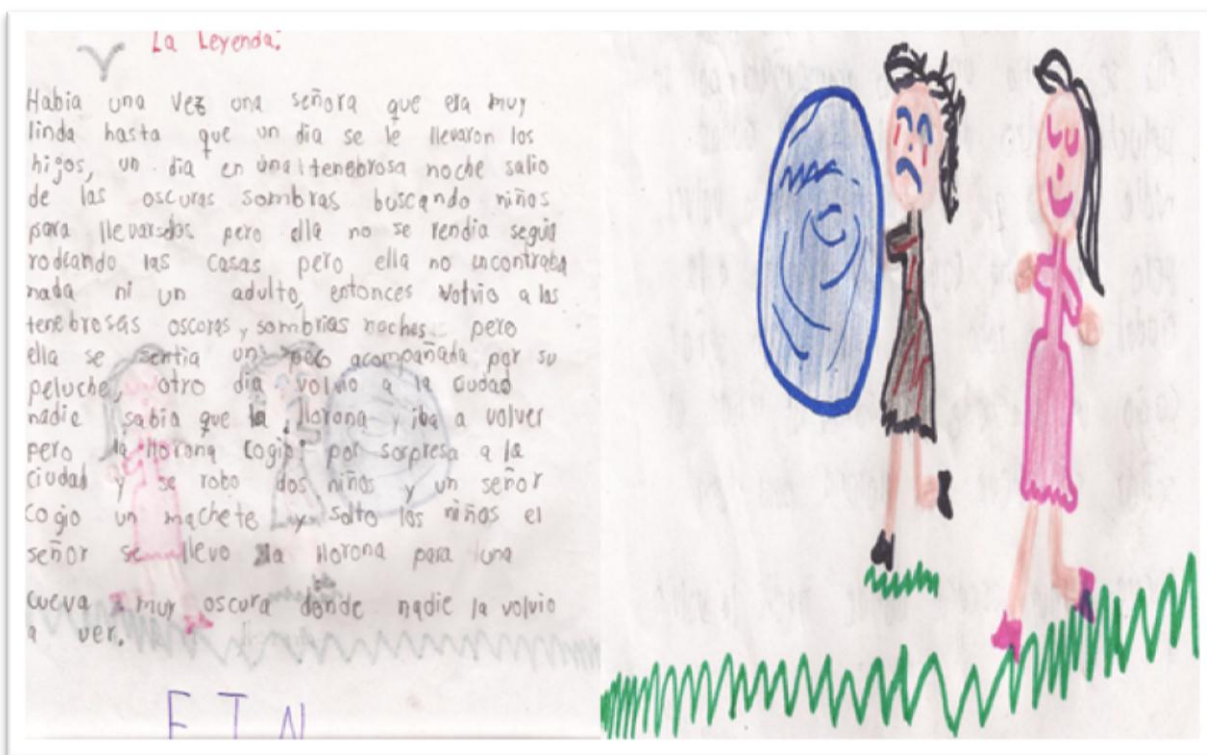 La Leyenda:
Habia una vez una señora que era muy
linda hasta que un dia se le llevaron los
hijos, un dia en una tenebrosa noche salio
de las oscuras sombras buscando niños
para llevarselos pero ella no se rendia seguia
rodeando las casas pero ella no encontraba
nada ni un adulto, entonces volvio a las
tenebrosas oscuras y sombrias noches pero
ella se sentia un poco acompañada por su
peluche, otro dia volvio a la ciudad
nadie sabia que la llorona iba a volver
pero la llorona cogio por sorpresa a la
ciudad y se robo dos niños y un señor
cogio un machete y salto los niños el
señor se llevo la llorona para una
cueva muy oscura donde nadie la volvio
a ver.
FIN